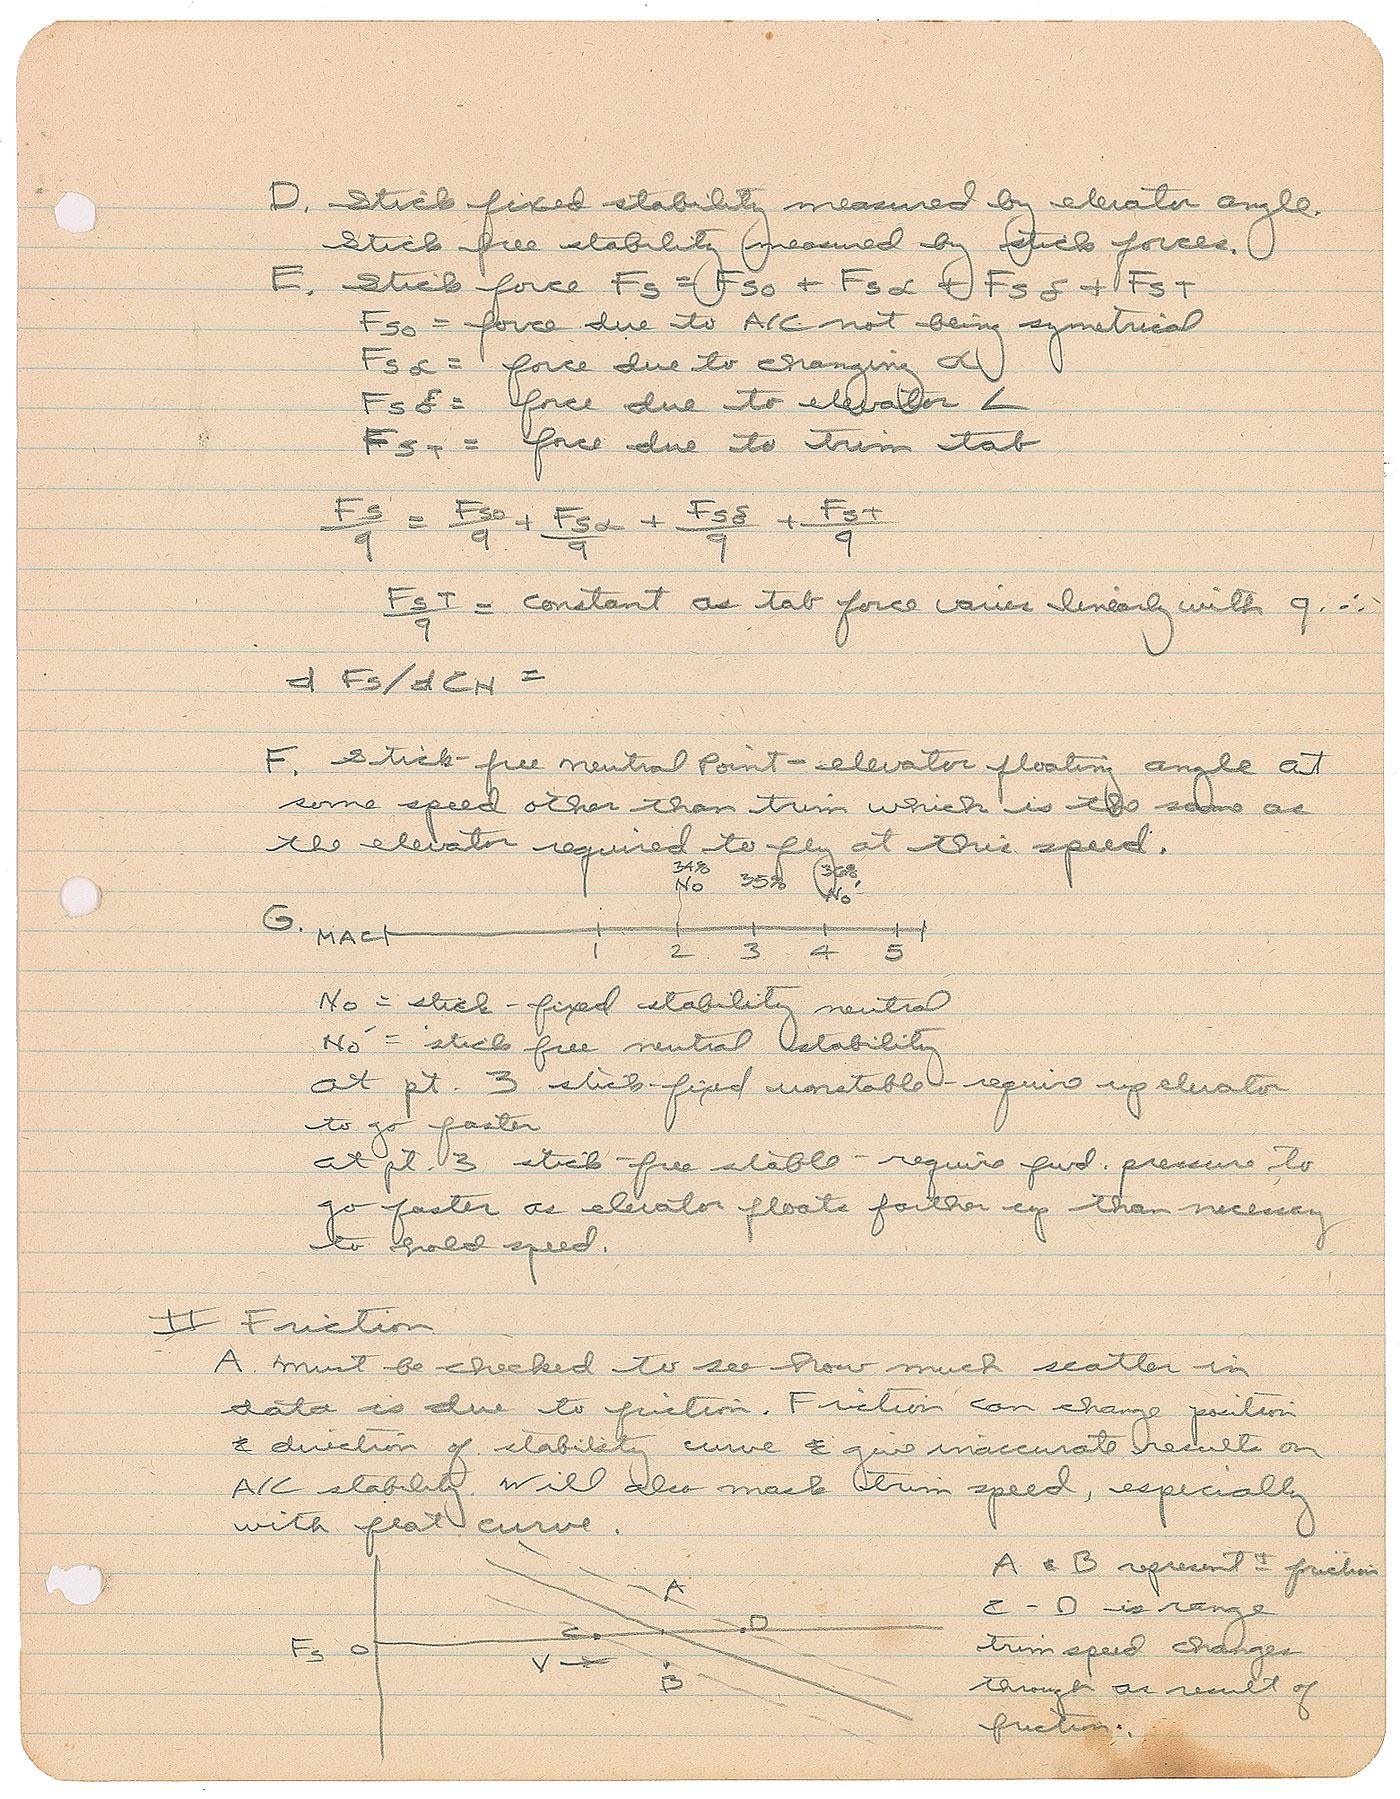 D. Stick fixed stability measured by elevator angle.
Stick free stability measured by stick forces.
E. Stick force Fs = Fso + Fsα + Fsδ + FsT
Fso = force due to A/C not being symetrical
Fsα = force due to changing α
Fsδ = force due to elevator ∠
FsT = force due to trim tab
Fs/q = Fso/q + Fsα/q + Fsδ/q + FsT/q
FsT/q = constant as tab force varies linearly with q. ∴
d Fs/dCN =
F. Stick-free neutral Point - elevator floating angle at
some speed other than trim which is the same as
the elevator required to fly at this speed.
34% 35% 36%
No No'
G. MAC
1 2 3 4 5
No = stick-fixed stability neutral
No' = stick free neutral stability
at pt. 3 stick-fixed unstable - require up elevator
to go faster
at pt. 3 stick-free stable - require fwd. pressure to
go faster as elevator floats farther up than necessary
to hold speed.
II Friction
A. Must be checked to see how much scatter in
data is due to friction. Friction can change position
& direction of stability curve & give inaccurate results on
A/C stability. Will also mask trim speed, especially
with flat curve.
A & B represent ± friction
C - D is range
trim speed changes
through as result of
friction.
A
C D
Fs 0
V →
B